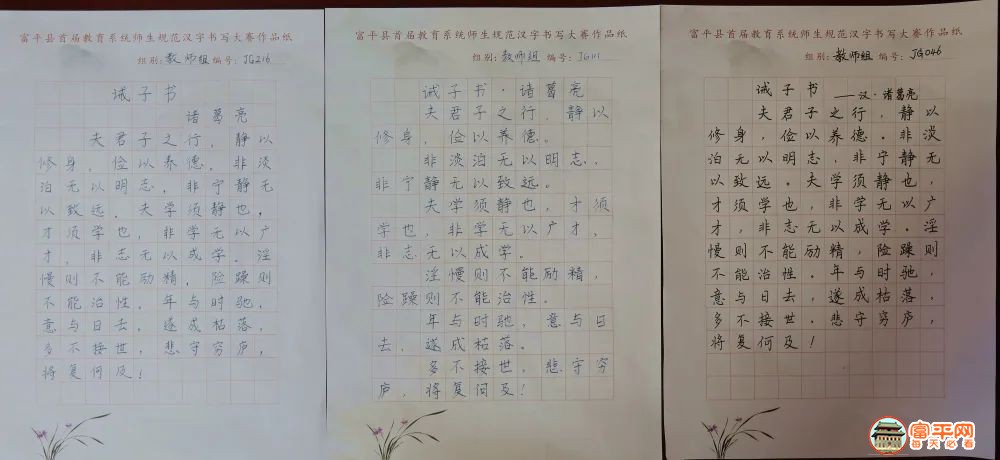 富平县首届教育系统师生规范汉字书写大赛作品纸
组别：教师组 编号：JG216
诫子书
诸葛亮
夫君子之行，静以
修身，俭以养德。非淡
泊无以明志，非宁静无
以致远。夫学须静也，
才须学也，非学无以广
才，非志无以成学。淫
慢则不能励精，险躁则
不能治性。年与时驰，
意与日去，遂成枯落，
多不接世，悲守穷庐，
将复何及！
富平县首届教育系统师生规范汉字书写大赛作品纸
组别：教师组 编号：JG111
诫子书·诸葛亮
夫君子之行，静以
修身，俭以养德。
非淡泊无以明志，
非宁静无以致远。
夫学须静也，才须
学也，非学无以广才，
非志无以成学。
淫慢则不能励精，
险躁则不能治性。
年与时驰，意与日
去，遂成枯落。
多不接世，悲守穷
庐，将复何及！
富平县首届教育系统师生规范汉字书写大赛作品纸
组别：教师组 编号：JG046
诫子书 ——汉·诸葛亮
夫君子之行，静以
修身，俭以养德。非淡
泊无以明志，非宁静无
以致远。夫学须静也，
才须学也，非学无以广
才，非志无以成学。淫
慢则不能励精，险躁则
不能治性。年与时驰，
意与日去，遂成枯落，
多不接世。悲守穷庐，
将复何及！
富平网
每天必看